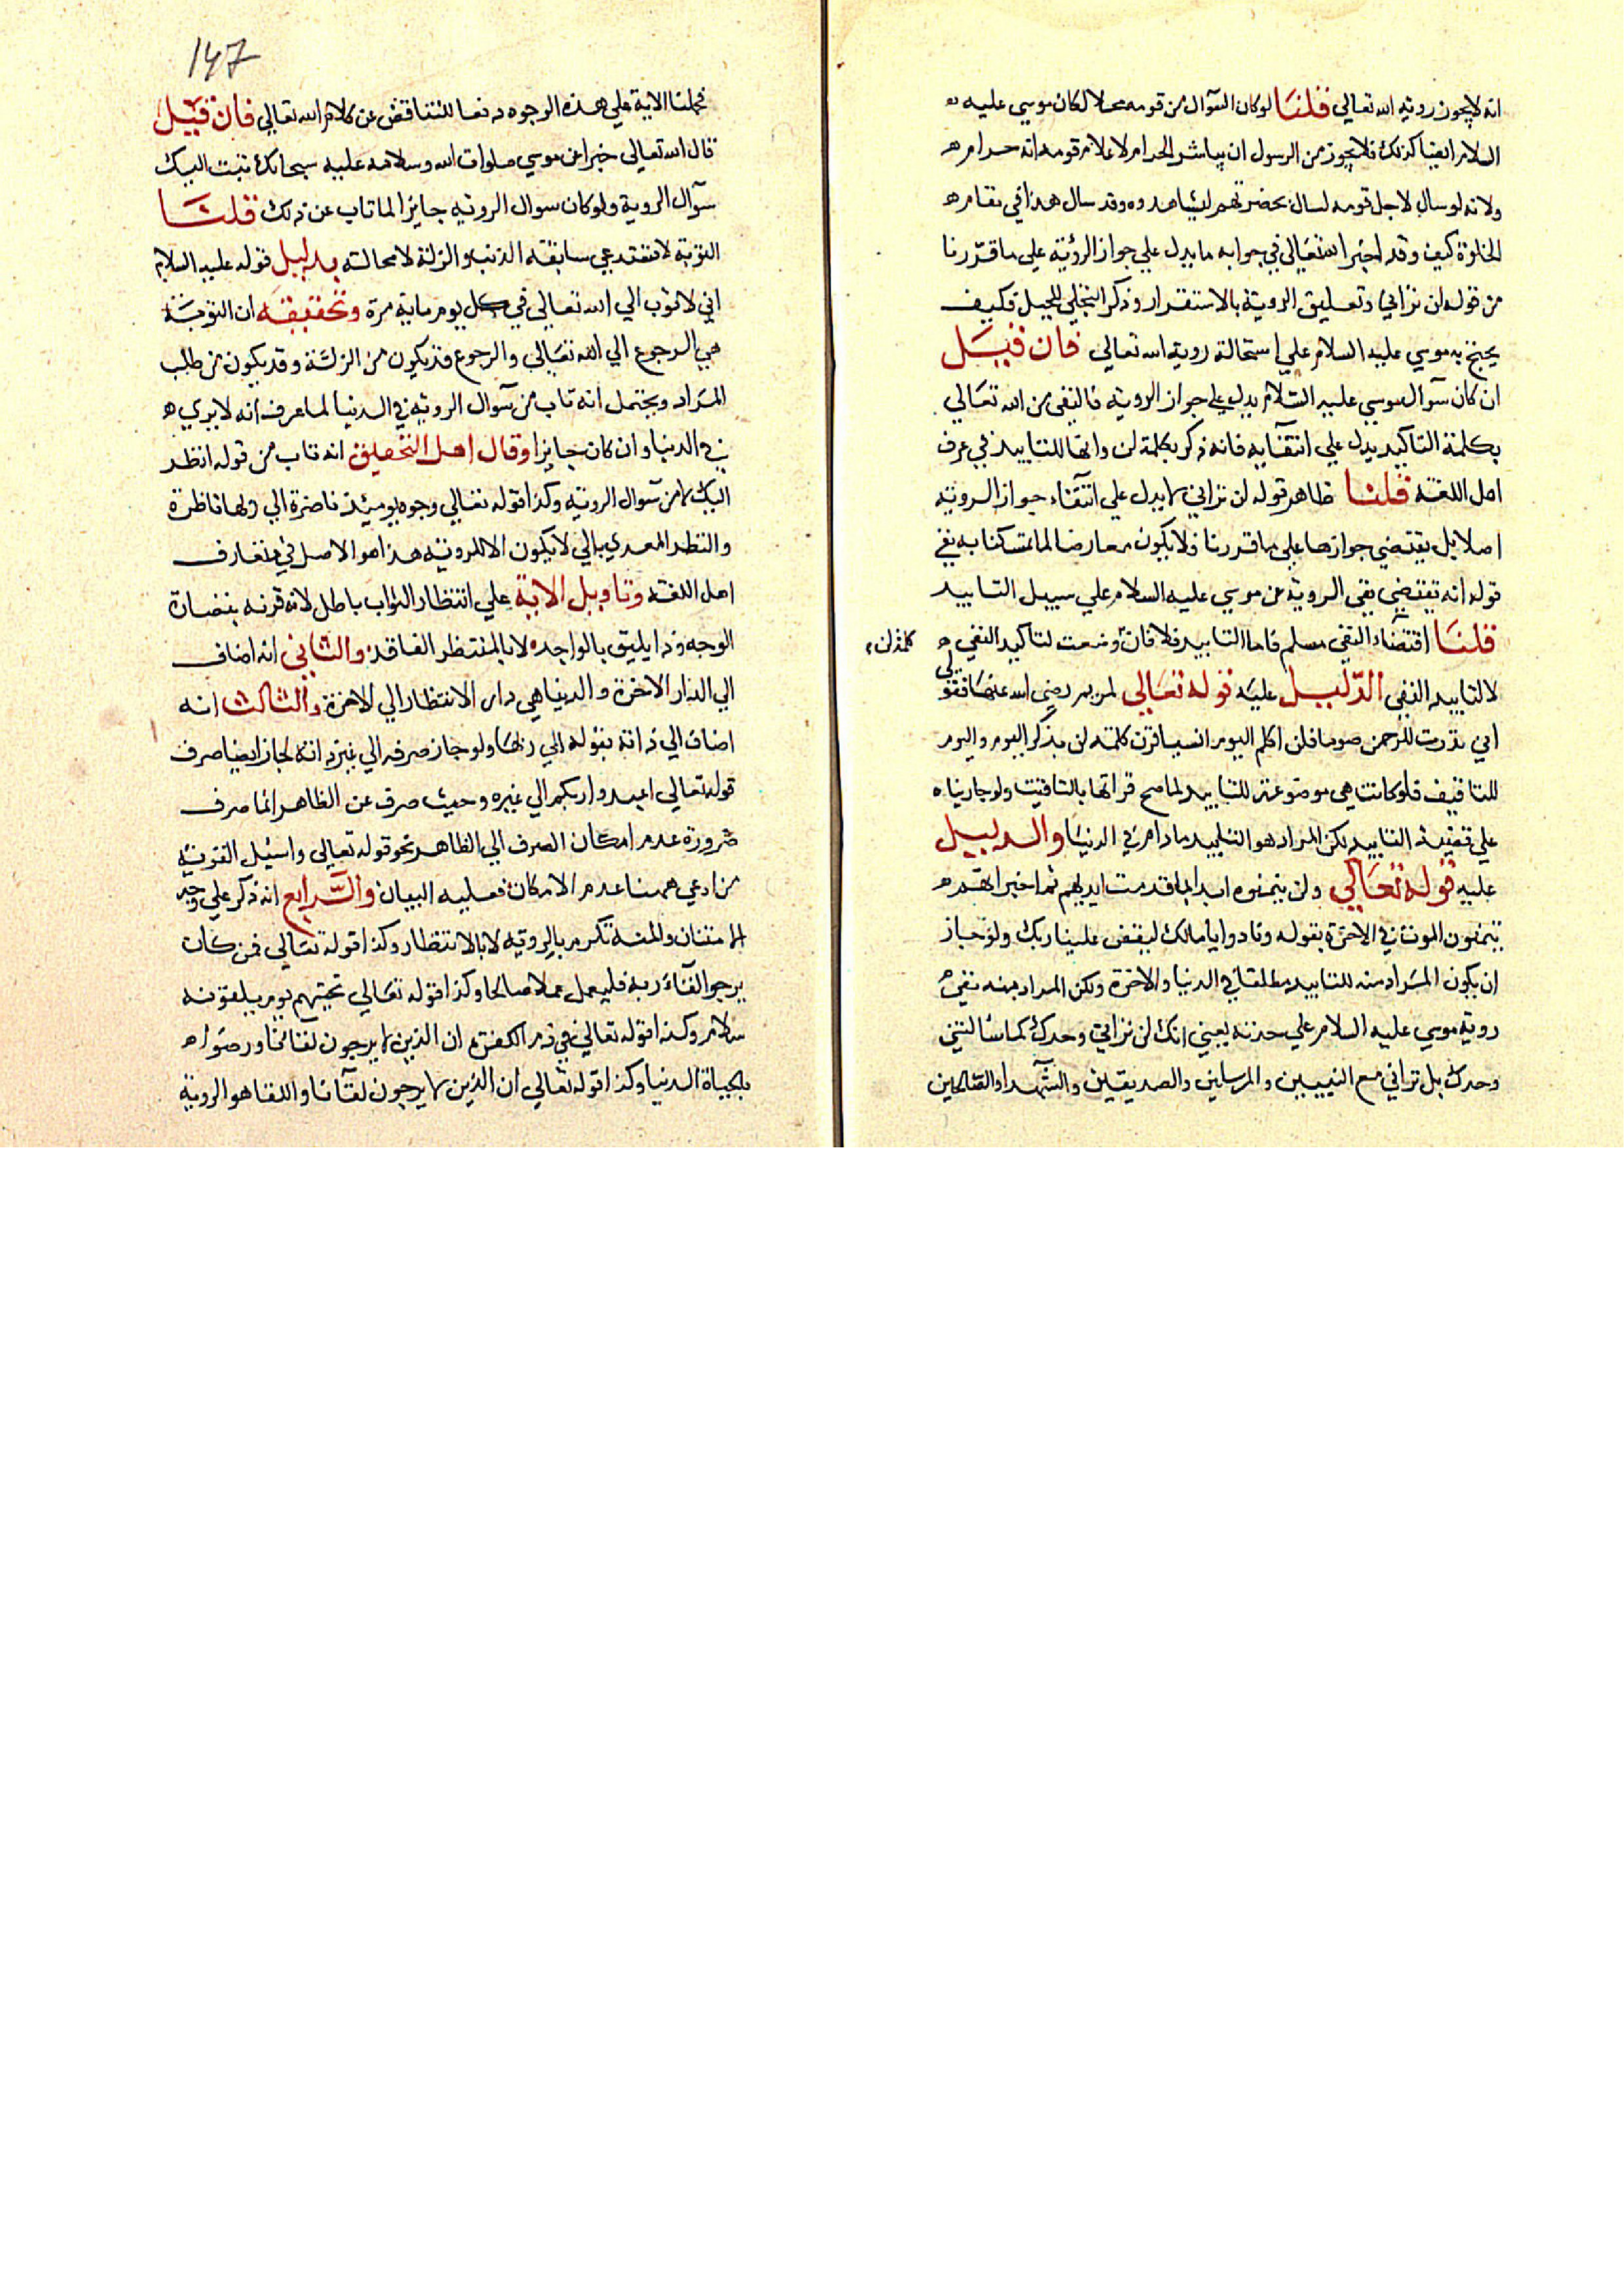 انه لا يجوز روية الله تعالي قلنا لو كان السوال من قومه محالا لكان موسي عليه
السلام ايضا كذلك فلا يجوز من الرسول ان يباشر الحرام لاعلام قومه انه حرام
ولانه لو سال لاجل قومه لسال بحضرتهم ليشاهدوه وقد سال هذا في مقام
الخلوة كيف وقد اخبر الله تعالي في جوابه ما يدل علي جواز الروية علي ما قررنا
من قوله لن تراني وتعليق الروية بالاستقرار وذكر التجلي للجبل فكيف
يحتج به موسي عليه السلام علي استحالة روية الله تعالي فان قيل
ان كان سوال موسي عليه السلام يدل علي جواز الروية فالنفي من الله تعالي
بكلمة التاكيد يدل علي انتفائه فانه ذكر بكلمة لن وانها للتابيد في عرف
اهل اللغة قلنا ظاهر قوله لن تراني لا يدل علي انتفاء جواز الروية
اصلا بل يقتضي جوازها علي ما قررنا فلا يكون معارضا لما تمسكنا به بقي
قوله انه تقتضي نفي الروية عن موسي عليه السلام علي سبيل التابيد
قلنا اقتضاء النفي مسلم فاما التابيد فلا فان وضعت لتاكيد النفي
كلمة لن
لا لتابيد النفي الدليل عليه قوله تعالي لمريم رضي الله عنها فقولي
اني نذرت للرحمن صوما فلن اكلم اليوم انسيا قرن كلمة لن بذكر اليوم واليوم
للتاقيت فلو كانت هي موضوعة للتابيد لما صح قرانها بالتاقيت ولو جارينا
علي قضية التابيد لكن المراد هو التابيد ما دام في الدنيا والدليل
عليه قوله تعالي ولن يتمنوه ابدا بما قدمت ايديهم ثم اخبر انهم
يتمنون الموت في الاخرة بقوله ونادوا يا مالك ليقض علينا ربك ولو جاز
ان يكون المراد منه للتابيد مطلقا في الدنيا والاخرة ولكن المراد منه نفي
روية موسي عليه السلام علي حدته يعني انك لن تراني وحدك كما سالتني
وحدك بل تراني مع النبيين والمرسلين والصديقين والشهدا والصالحين
147
فحملنا الاية علي هذه الوجوه دفعا للتناقض عن كلام الله تعالي فان قيل
قال الله تعالي خبرا عن موسي صلوات الله وسلامه عليه سبحانك تبت اليك
سوال الروية ولو كان سوال الروية جايزا لما تاب عن ذلك قلنا
التوبة لا تقتدعي سابقة الذنب والزلة لا محالة بدليل قوله عليه السلام
اني لاتوب الي الله تعالي في كل يوم ماية مرة وتحقيقه ان التوبة
هي الرجوع الي الله تعالي والرجوع قد يكون من الزلة وقد يكون من طلب
المراد ويحتمل انه تاب من سوال الروية في الدنيا لما عرف انه لا يري
في الدنيا وان كان جايزا وقال اهل التحقيق انه تاب من قوله انظر
اليك لا من سوال الروية وكذا قوله تعالي وجوه يومئذ ناضرة الي ربها ناظرة
والنظر المعدي بالي لا يكون الا للروية هذا هو الاصل في متعارف
اهل اللغة وتاويل الاية علي انتظار الثواب باطل لانه قرنه بنضارة
الوجه وذا يليق بالواجد لا بالمنتظر الفاقد والثاني انه اضاف
الي الدار الاخرة والدنيا هي دار الانتظار الي الاخرة والثالث انه
اضاف الي ذاته بقوله الي ربها ولو جاز صرفه الي غير ذاته لجاز ايضا صرف
قوله تعالي اعبدوا ربكم الي غيره وحيث صرف عن الظاهر انما صرف
ضرورة عدم امكان الصرف الي الظاهر نحو قوله تعالي واسئل القرية
من ادعي ههنا عدم الامكان فعليه البيان والرابع انه ذكر علي وجه
الامتنان والمنة تكرم بالروية لا بالانتظار وكذا قوله تعالي فمن كان
يرجوا لقاء ربه فليعمل عملا صالحا وكذا قوله تعالي تحيتهم يوم يلقونه
سلام وكذا قوله تعالي في ذم الكفرة ان الذين لا يرجون لقاءنا ورضوا
بالحياة الدنيا وكذا قوله تعالي ان الذين لا يرجون لقانا واللقا هو الروية